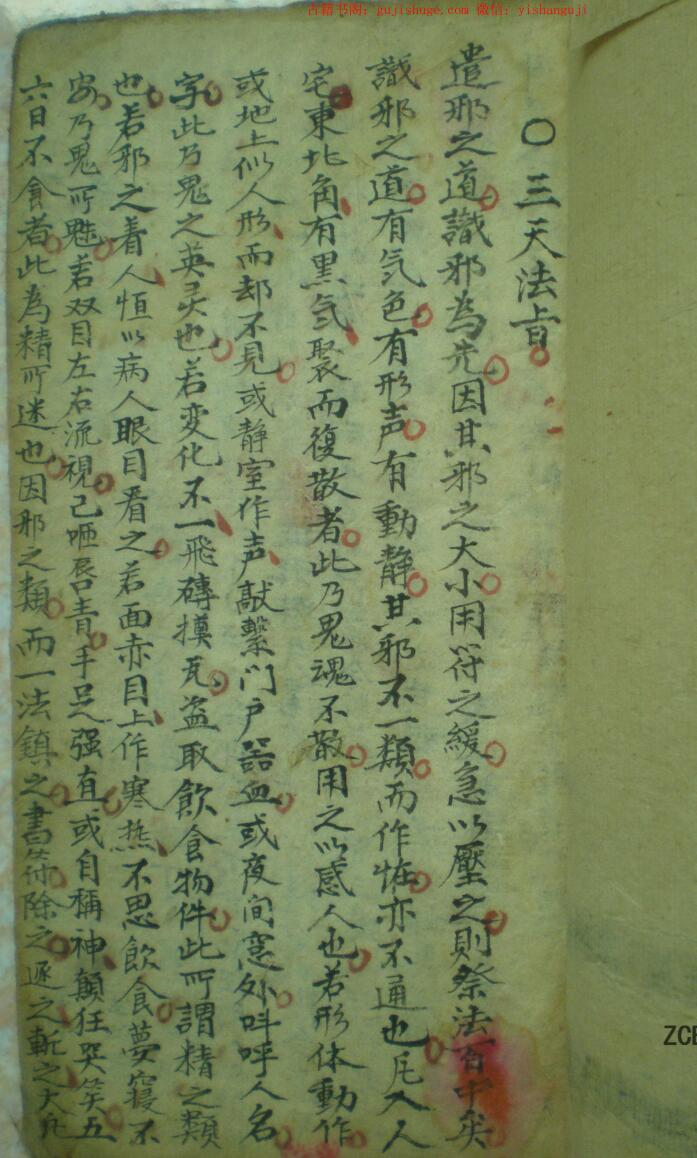 古籍书阁：gujishuge.com 微信：yishanguji
〇三天法旨
遣邪之道識邪為先因其邪之大小用符之緩急以壓之則祭法百中矣
識邪之道有気色有形声有動静其邪不一類而作恠亦不通也凡入人
宅東北角有黒気聚而復散者此乃鬼魂不散用之以感人也若形体動作
或地上似人形而却不見或静室作声敲繫门户器血或夜间窓外呌呼人名
字此乃鬼之英灵也若变化不一飛磚摸瓦盗取飲食物件此所謂精之類
也若邪之着人恒以病人眼目看之若面赤目上作寒热不思飲食夢寝不
安乃鬼所魅若双目左右流視己咂唇青手足强直或自稱神顛狂哭笑五
六日不食者此為精所迷也因邪之類而一法鎮之書符除之逐之斬之大凡
ZCB